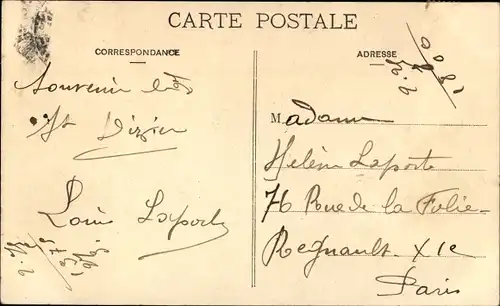 CARTE POSTALE
CORRESPONDANCE
Souvenir de
St Dizier
Louis Laporte
ADRESSE
Madame
Helène Laporte
76 Rue de la Folie-
Regnault. XIe
Paris